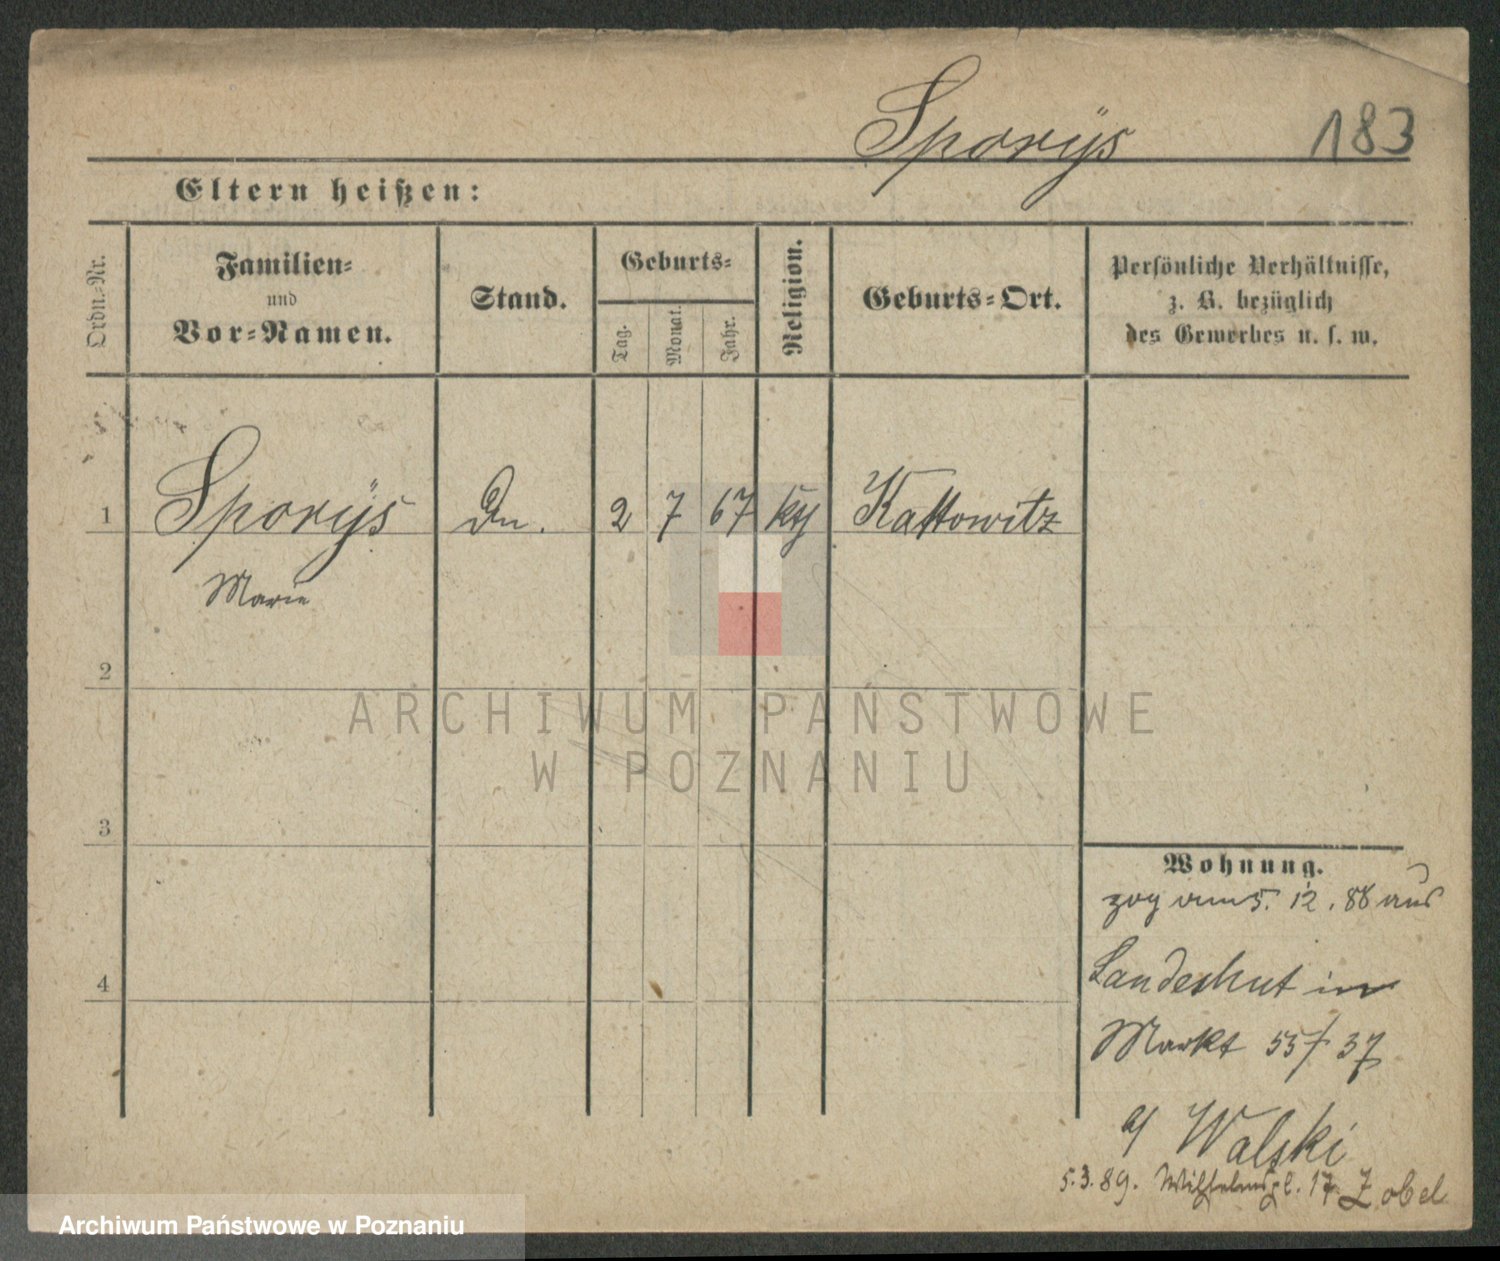 Sporÿs 183
Eltern heißen:
Ordn.-Nr.
Familien-
und
Vor-Namen.
Stand.
Geburts-
Tag.
Monat.
Jahr.
Religion.
Geburts-Ort.
Persönliche Verhältnisse,
z. B. bezüglich
des Gewerbes u. s. w.
1 Sporÿs 2 7 67 Kattowitz
Marie
2
3
4
ARCHIWUM PAŃSTWOWE
W POZNANIU
Wohnung.
zog am 5. 12. 88 aus
Landeshut in
Markt 55/37
Walski
5.3.89. Wilhelmspl. 17. Zobel
Archiwum Państwowe w Poznaniu